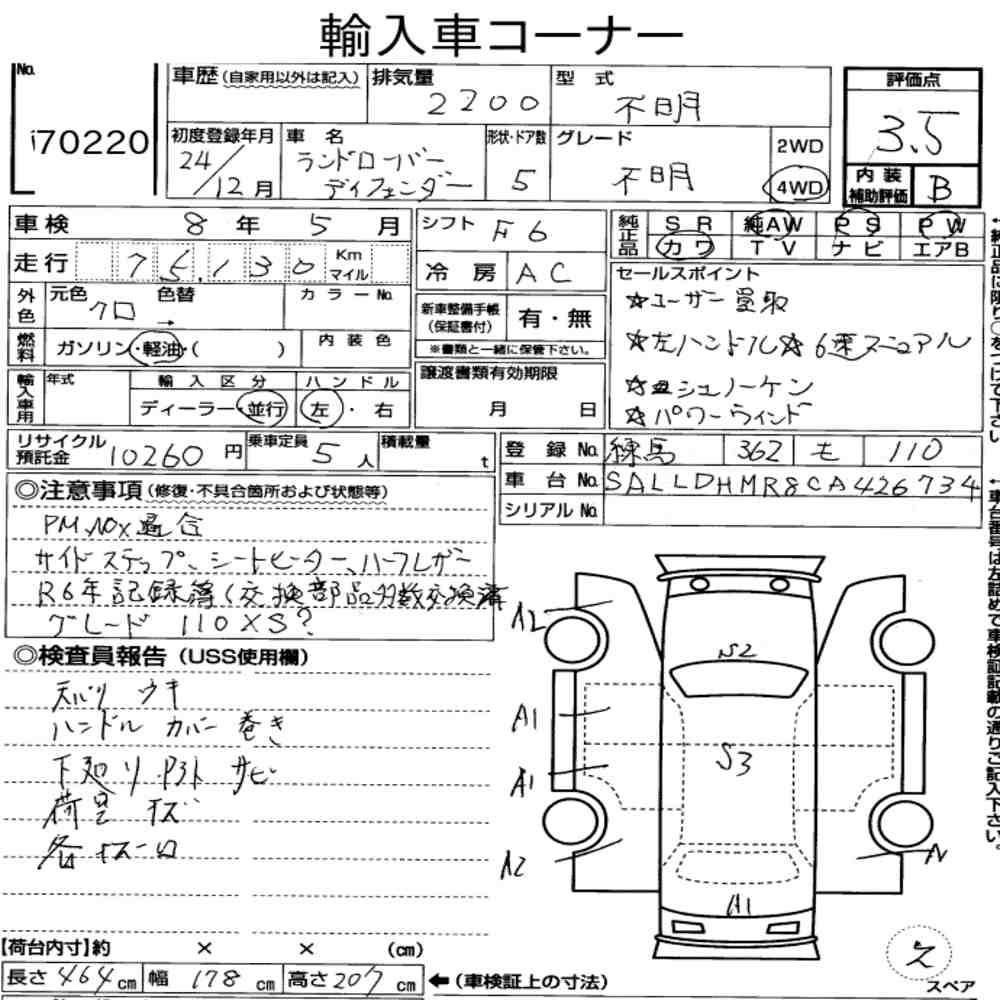 輸入車コーナー
No.
170220
車歴(自家用以外は記入)
排気量
2200
型式
不明
評価点
3.5
初度登録年月
24/12月
車名
ランドローバー
ディフェンダー
形状・ドア数
5
グレード
不明
2WD
4WD
内装
補助評価
B
車検 8年 5月
シフト F6
純正品
SR 純AW PS PW
カワ TV ナビ エアB
走行 75,130 Km マイル
冷房 AC
セールスポイント
☆ユーザー買取
☆左ハンドル☆6速マニュアル
☆シュノーケン
☆パワーウィンド
外色
元色 色替 カラーNo.
クロ →
新車整備手帳
(保証書付)
有・無
※書類と一緒に保管下さい。
燃料
ガソリン・軽油・( )
内装色
譲渡書類有効期限
月 日
輸入車用
年式 輸入区分 ハンドル
ディーラー・並行 左・右
リサイクル
預託金
10260円
乗車定員
5人
積載量
t
登録No. 練馬 362 モ 110
車台No. SALLDHMR8CA426734
シリアルNo.
◎注意事項(修復・不具合箇所および状態等)
PM、NOx適合
サイドステップ、シートヒーター、ハーフレザー
R6年記録簿(交換部品多数交換済
グレード 110XS?
◎検査員報告(USS使用欄)
天バリ ウキ
ハンドル カバー 巻き
下廻り サビ
荷室 キズ
A2
A1
A1
A2
S2
S3
A1
スペア
【荷台内寸】約 × × (cm)
長さ464cm 幅178cm 高さ207cm
←(車検証上の寸法)
←純正品に限り○をつけて下さい。
←車台番号は左詰めで車検証記載の通りご記入下さい。